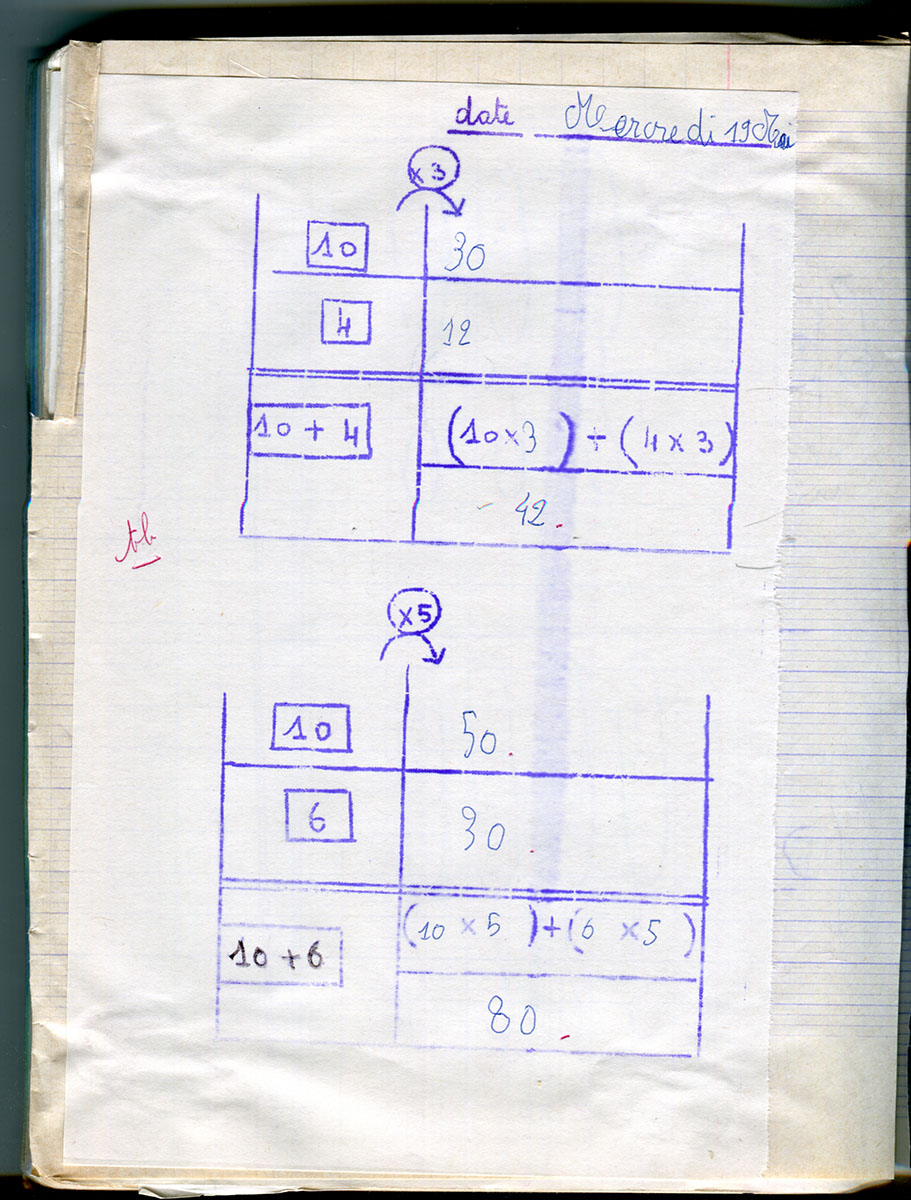 date Mercredi 19 Mai
x 3
10 30
4 12
10 + 4 (10 x 3) + (4 x 3)
42.
tb
x5
10 50.
6 30.
(10 x 5) + (6 x 5)
10 + 6
80.